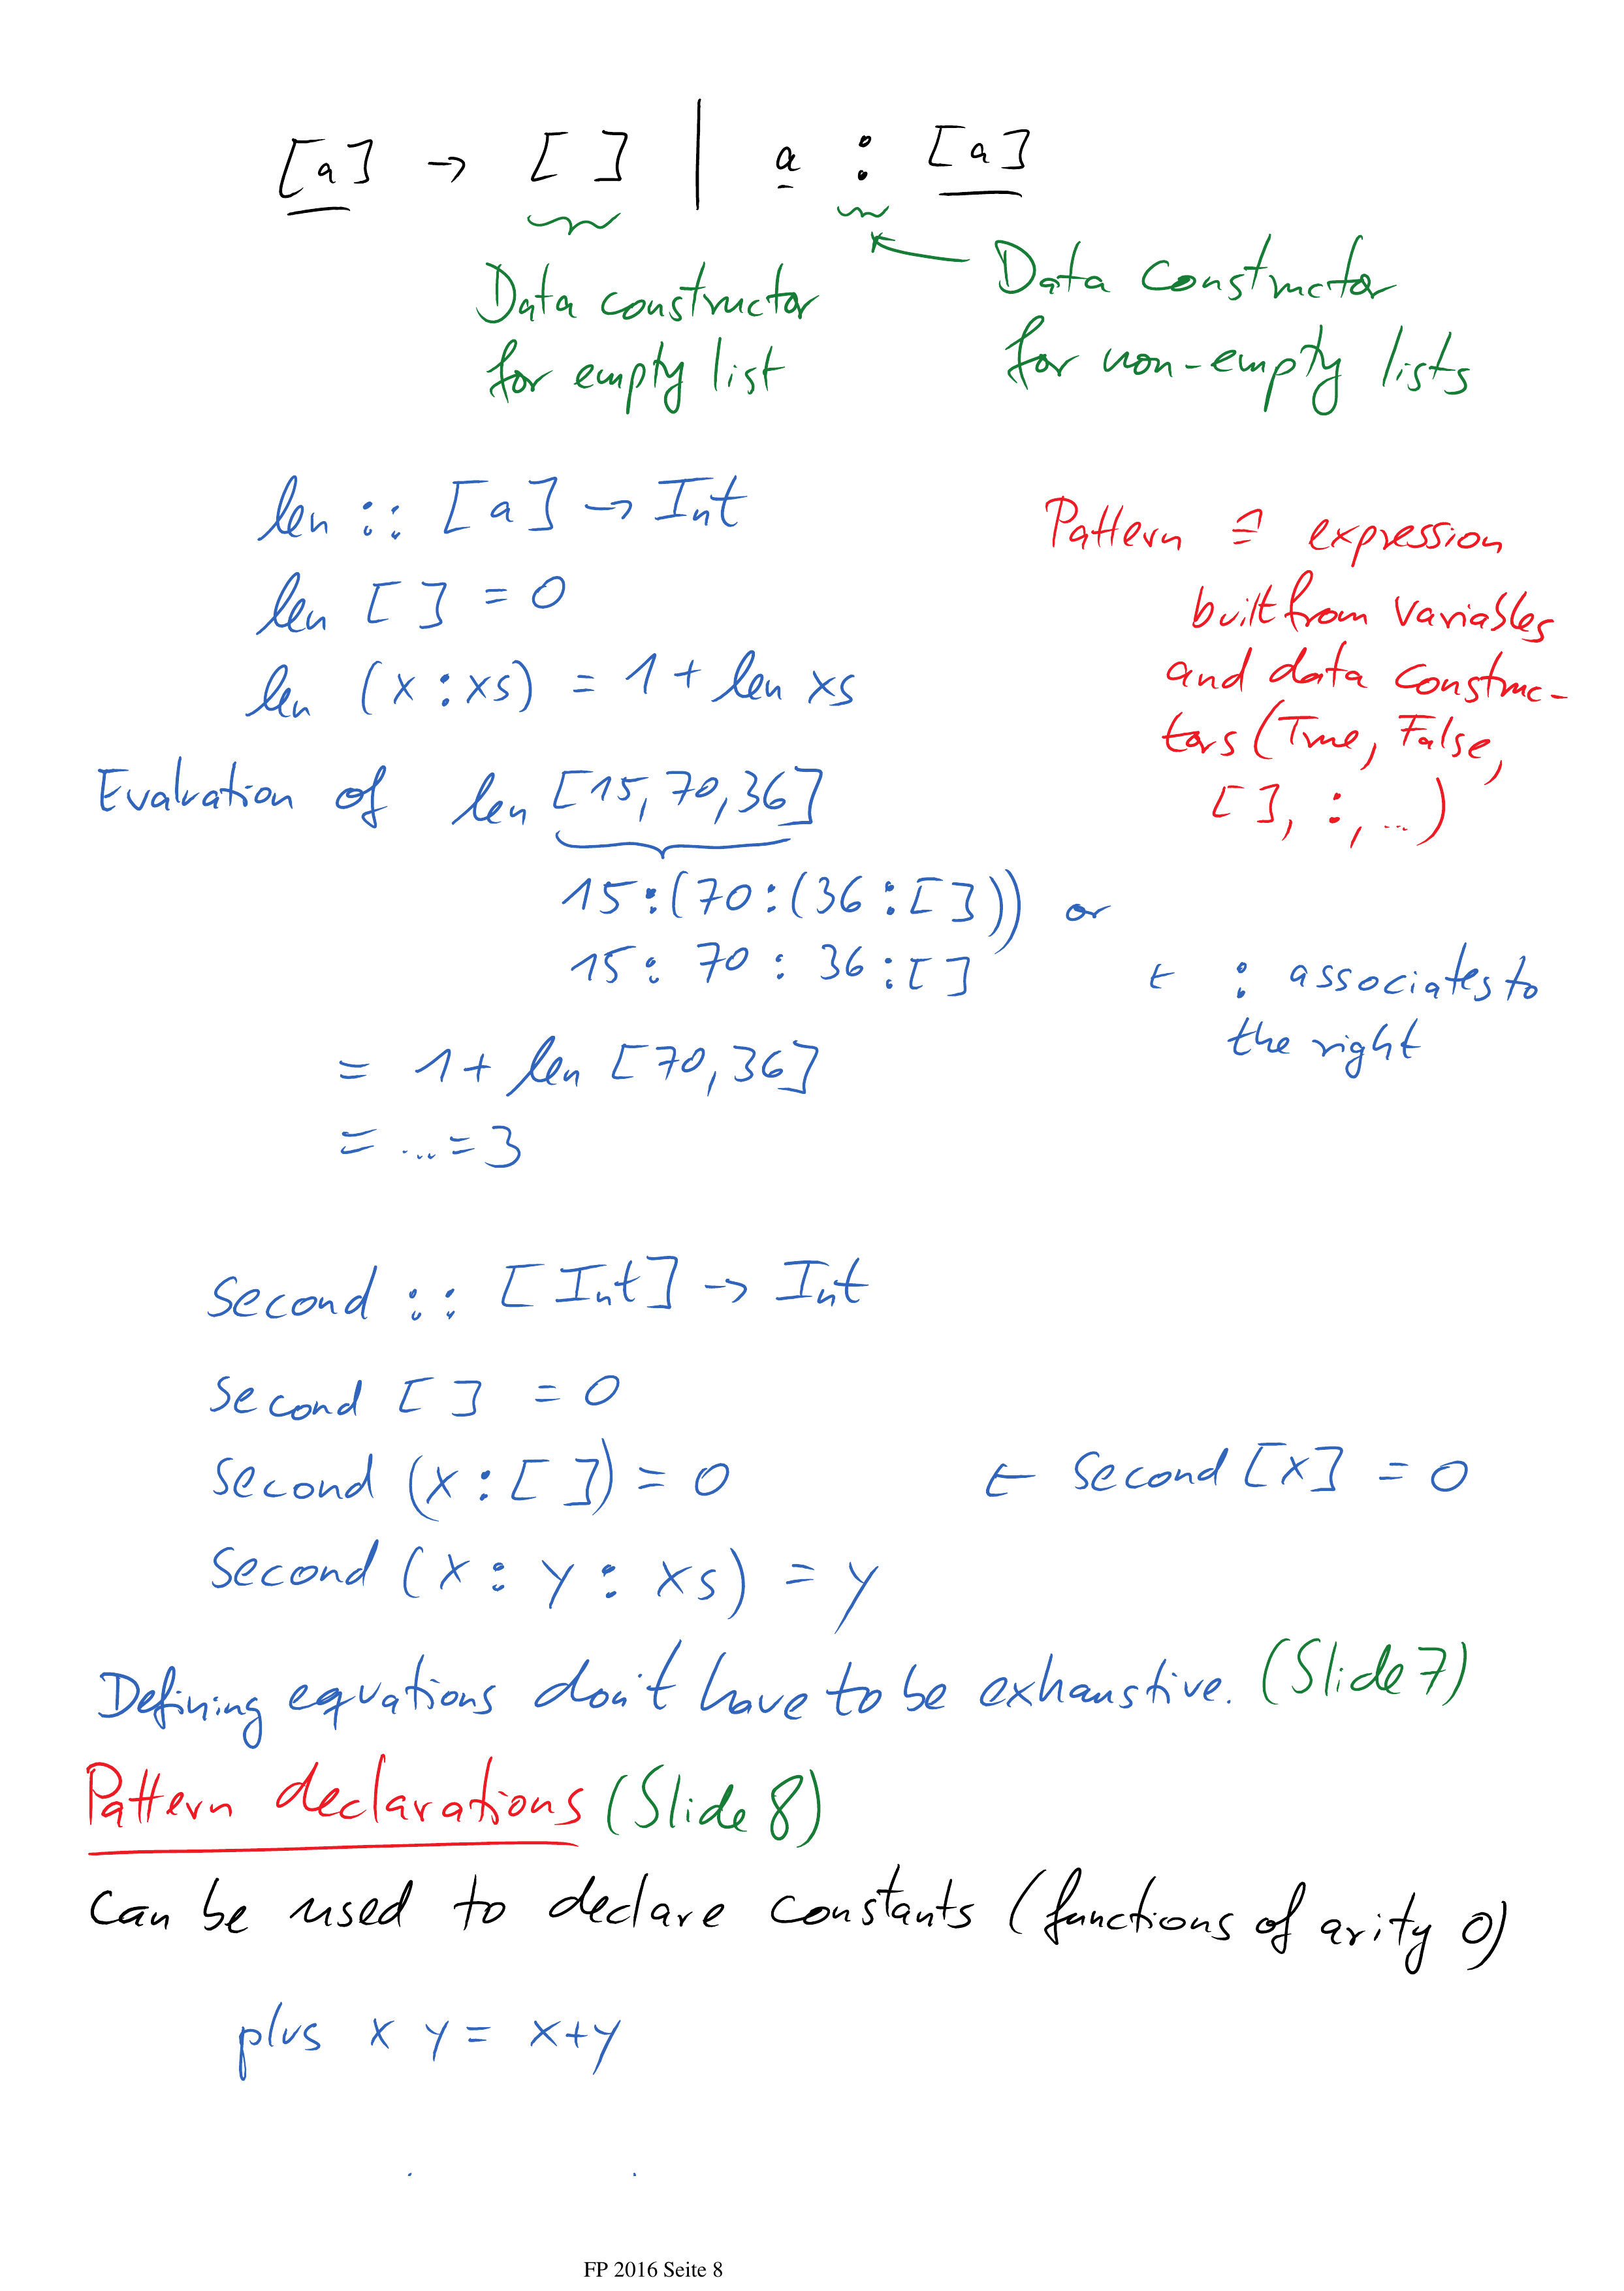 [a] → [ ] | a : [a]
Data constructor
for empty list
Data constructor
for non-empty lists
len :: [a] → Int
len [ ] = 0
len (x : xs) = 1 + len xs
Pattern ≙ expression
built from variables
and data construc-
tors (True, False,
[ ], : , ...)
Evaluation of len [15, 70, 36]
15 : (70 : (36 : [ ])) or
15 : 70 : 36 : [ ] ← : associates to
the right
= 1 + len [70, 36]
= ... = 3
second :: [Int] → Int
second [ ] = 0
second (x : [ ]) = 0 ← second [x] = 0
second (x : y : xs) = y
Defining equations don't have to be exhaustive. (Slide 7)
Pattern declarations (Slide 8)
can be used to declare constants (functions of arity 0)
plus x y = x+y
FP 2016 Seite 8